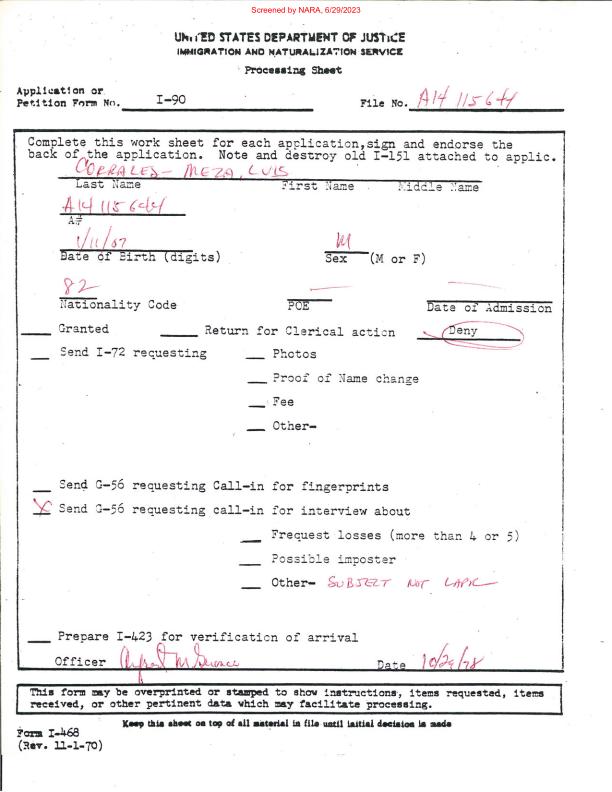 Screened by NARA, 6/29/2023
UNITED STATES DEPARTMENT OF JUSTICE
IMMIGRATION AND NATURALIZATION SERVICE
Processing Sheet
Application or
Petition Form No. I-90 File No. A14 115 644
Complete this work sheet for each application,sign and endorse the
back of the application. Note and destroy old I-151 attached to applic.
CORRALES- MEZA, LUIS
Last Name First Name Middle Name
A14 115 644
A#
1/11/07 M
Date of Birth (digits) Sex (M or F)
82
Nationality Code POE Date of Admission
Granted Return for Clerical action Deny
Send I-72 requesting Photos
Proof of Name change
Fee
Other-
Send G-56 requesting Call-in for fingerprints
X Send G-56 requesting call-in for interview about
Frequest losses (more than 4 or 5)
Possible imposter
Other- SUBJECT NOT LAPR
Prepare I-423 for verification of arrival
Officer Date 10/29/78
This form may be overprinted or stamped to show instructions, items requested, items
received, or other pertinent data which may facilitate processing.
Keep this sheet on top of all material in file until initial decision is made
Form I-468
(Rev. 11-1-70)